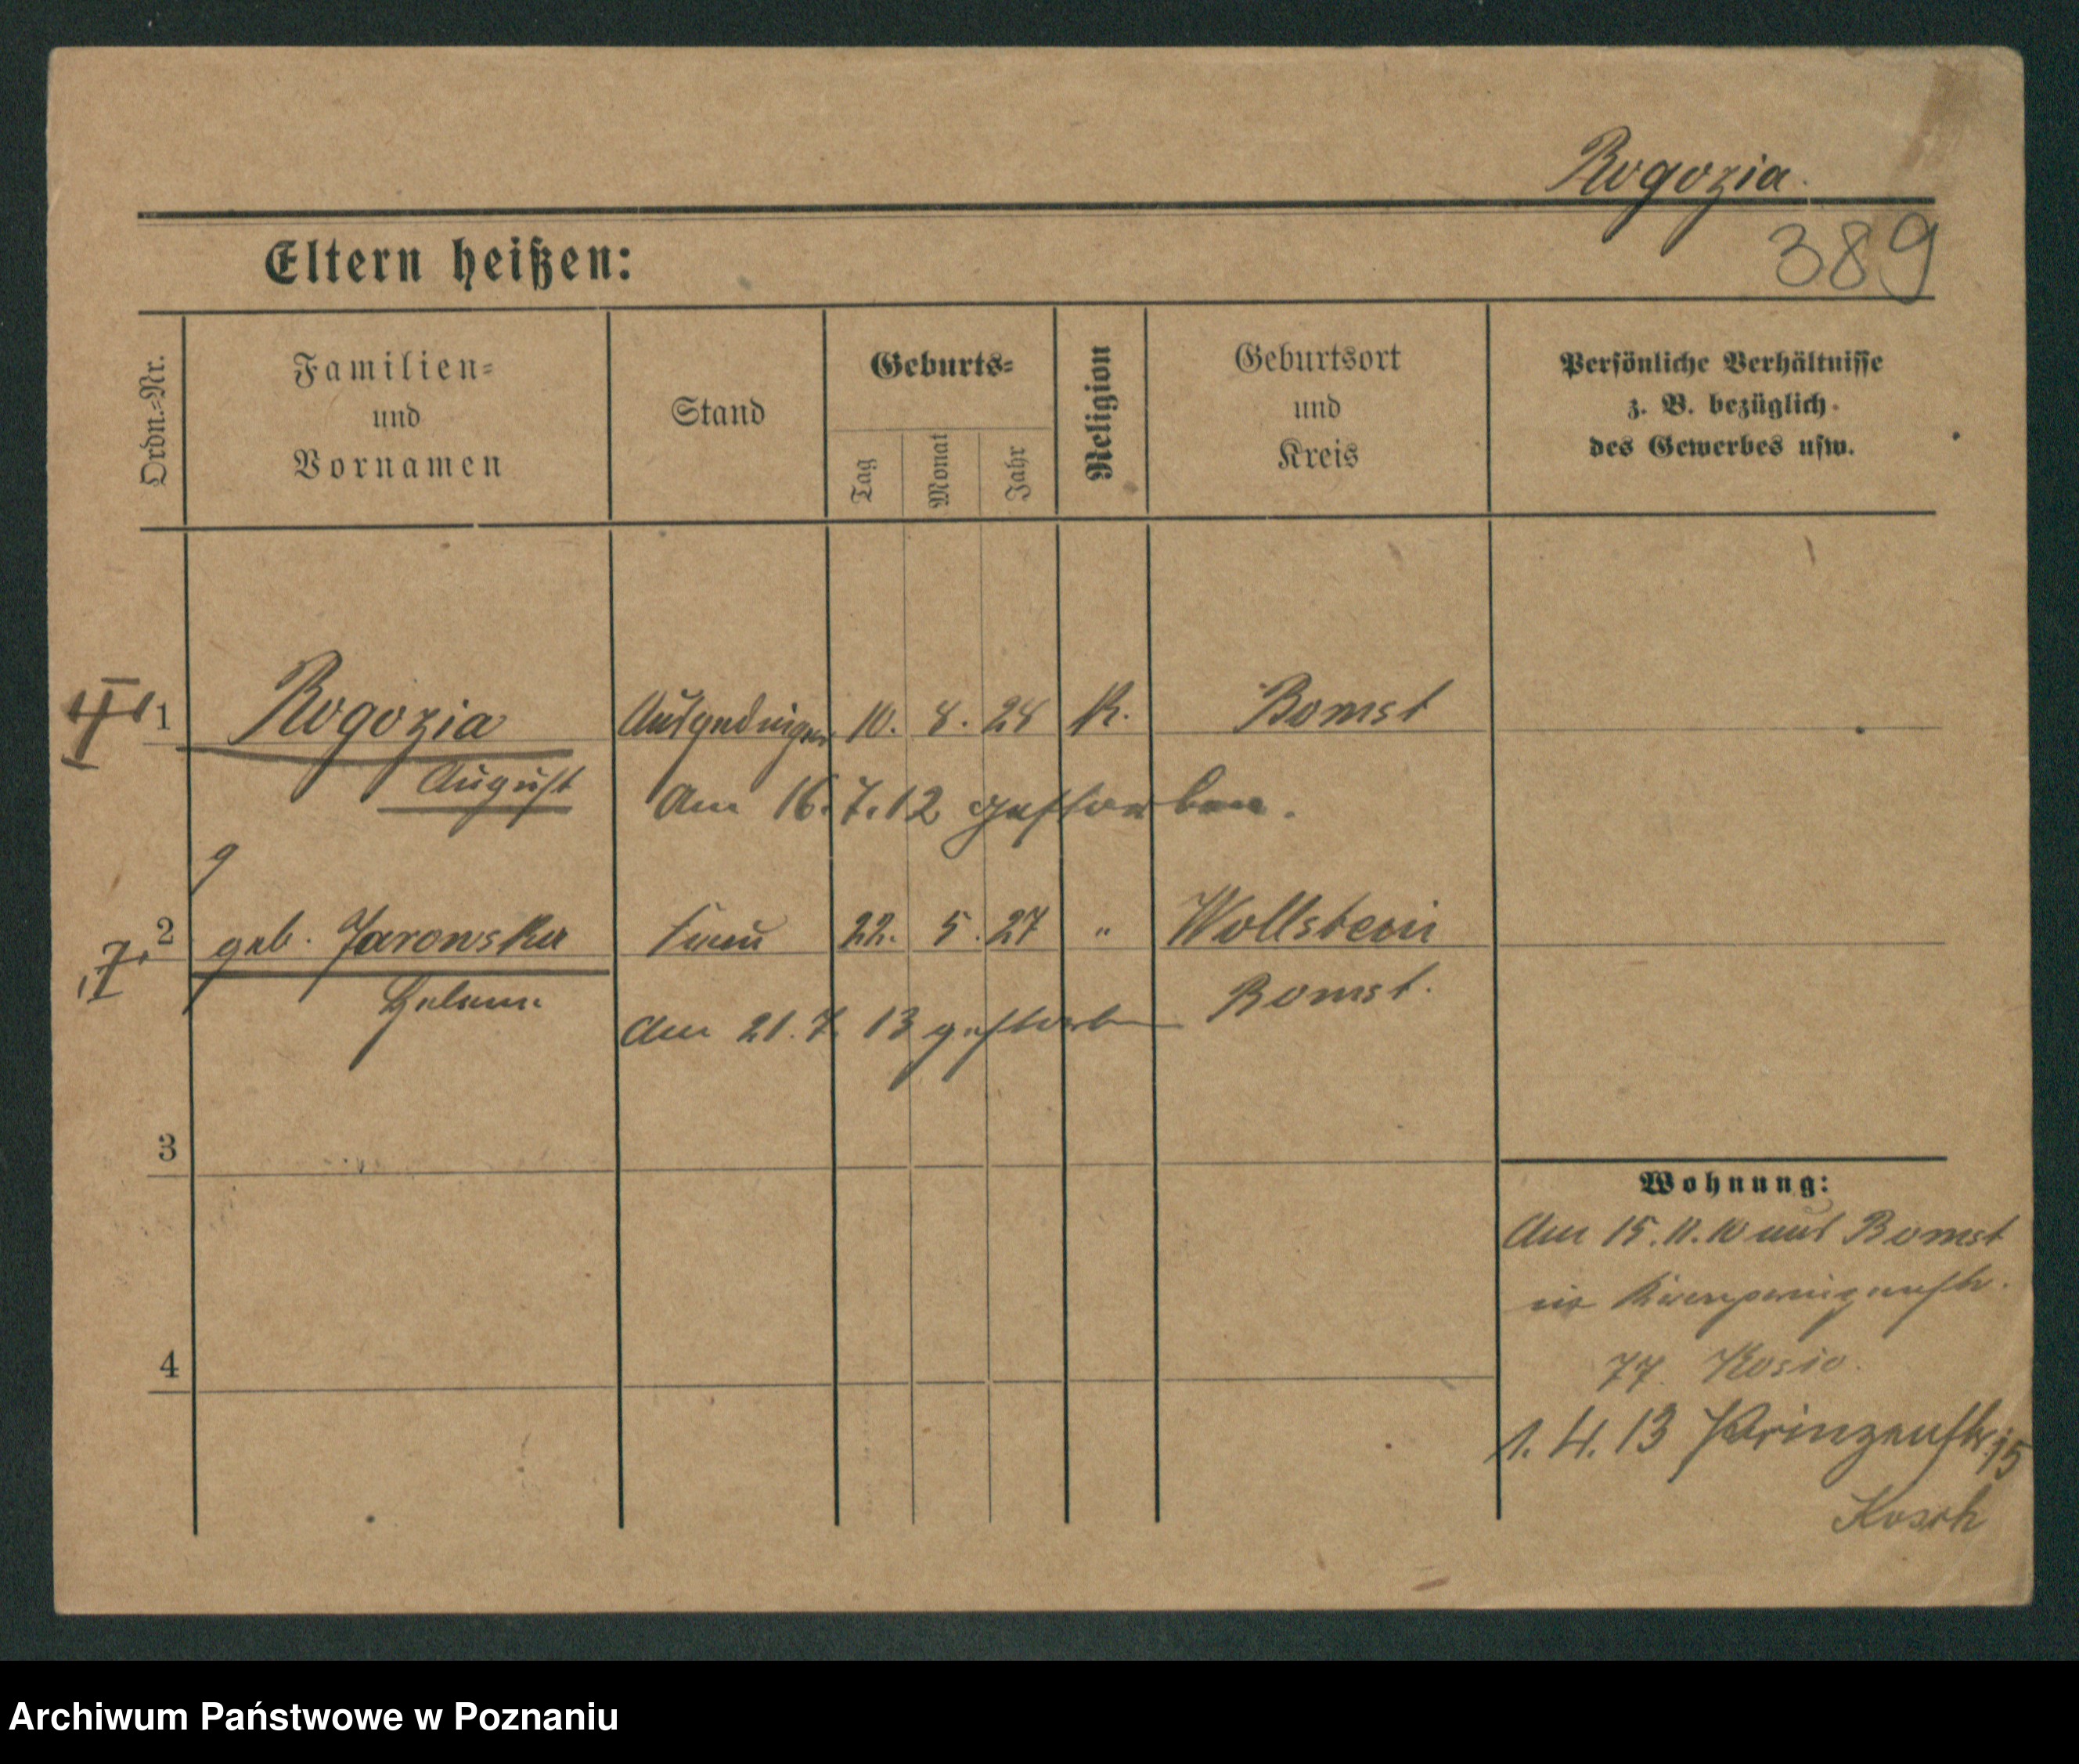 Rogozia.
389
Eltern heißen:
Ordn.-Nr.
Familien-
und
Vornamen
Stand
Geburts-
Tag
Monat
Jahr
Religion
Geburtsort
und
Kreis
Persönliche Verhältnisse
z. B. bezüglich
des Gewerbes usw.
1 Rogozia 10. 8. 28 K. Bomst
August
Am 16.7.12 gestorben.
2 geb. Jarowska Frau 22. 5. 27 " Wollstein
Bomst.
Am 21.7.13 gestorben
3
4
Wohnung:
Am 15.11.10 aus Bomst
77
1.4.13 Prinzenstr. 15
Archiwum Państwowe w Poznaniu